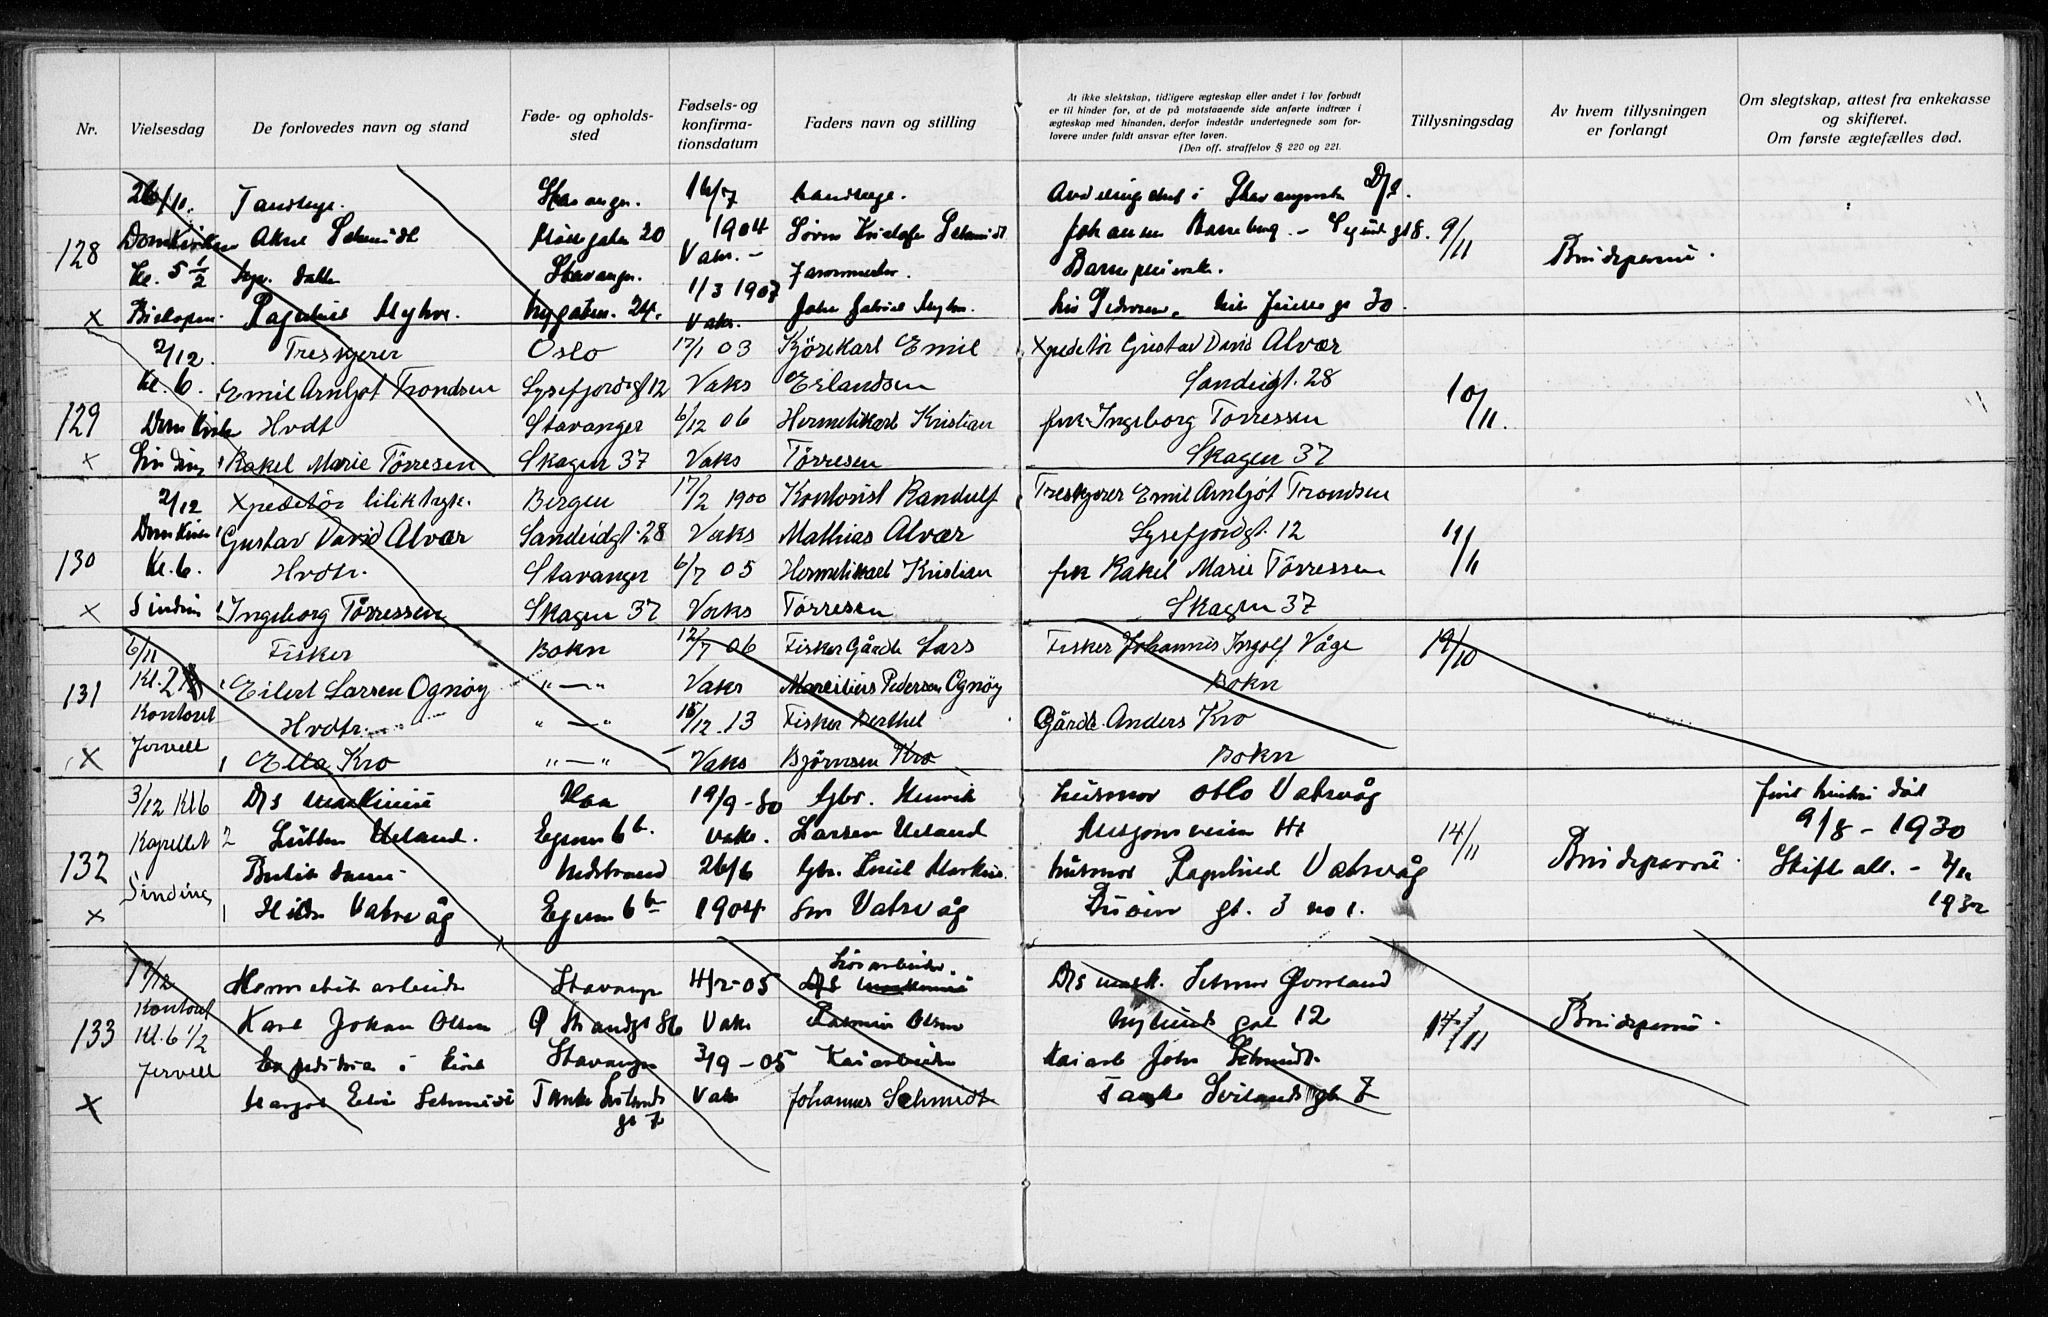 Nr.
Vielsesdag
De forlovedes navn og stand
Føde- og opholds-
sted
Fødsels- og
konfirma-
tionsdatum
Faders navn og stilling
At ikke slektskap, tidligere ægteskap eller andet i lov forbudt
er til hinder for, at de på motstaaende side anførte indtrær i
ægteskap med hinanden, derfor indestår undertegnede som for-
lovere under fuldt ansvar efter loven.
(Den off. straffelov § 220 og 221.
Tillysningsdag
Av hvem tillysningen
er forlangt
Om slegtskap, attest fra enkekasse
og skifteret.
Om første ægtefælles død.
128
26/11.
Domkirken
Kl. 5 1/2
Biskopen.
×
Tandlege.
Schmidt
Ragnhild Myhre.
Stavanger.
20
Stavanger.
Nygaten. 24.
16/7
1904
Vaks. -
1/3 1907
Vaks.
Tandlege.
Søren Kristofer Schmidt
John Gabriel Myhre.
i Stavangerske D/S.
Johannes
30.
9/11
Brudeparret.
129
2/12.
Kl. 6.
Domkirke
Sinding
×
Treskjerer
Emil Arnljot Trondsen
Hvdt
Rakel Marie Tørresen
Oslo
Lysefjordsgt 12
Stavanger
Skagen 37
17/1 03
Vaks
6/12 06
Vaks
Kjørekarl Emil
Erlandsen
Hermetikkarl Kristian
Tørresen
Xpeditør Gustav David Alvær
Sandeidgt. 28
frk Ingeborg Torressen
Skagen 37
10/11.
130
2/12
Domkirke
Kl. 6.
Sinding
×
Xpeditør
Gustav David Alvær
Hvdtr.
Ingeborg Tørressen
Bergen
Sandeidgt. 28
Stavanger
Skagen 37
17/2 1900
Vaks
6/7 05
Vaks
Kontorist Randulf
Mathias Alvær
Hermetikkarl Kristian
Tørresen
Treskjerer Emil Arnljot Trondsen
Lysefjordgt. 12
frk Rakel Marie Tørressen
Skagen 37
11/11
131
6/11
Kl. 2
Kontoret
Jervell
×
Fisker
Eilert Larsen Ognøy
Hvdtr.
Ella Kro
Bokn
" — "
" — "
" — "
12/7 06
Vaks
18/12 13
Vaks
Fisker Gårdb Lars
Marcilius Pedersen Ognøy
Fisker Berthel
Bjørnsen Kro
Fisker Johannes Ingolf Våge
Bokn
Gårdb. Anders Kro
Bokn
19/10
132
3/12 Kl 6
Kapellet
Sinding
×
D/S maskinist
2 Ueland.
Vatsvåg
Haa
Egenes 6 b.
Nedstrand
Egenes 6 b
19/9 - 80
Vaks.
26/6
1904
Gbr. Henrik
Larsen Ueland
Gbr. Emil Markus-
sen Vatsvåg
Husmor Vatsvåg
Husmor Ragnhild Vatsvåg
gt. 3 no 1.
14/11
Brudeparret.
første hustru død
9/8 - 1930
Skifte att. -
1932
133
17/12
Kontoret
Kl. 6 1/2
Jervell
×
Hermetikarbeider
Karl Johan Olsen
Schmidt
Stavanger
Ø Strandgt 86
Stavanger
Tanke Svilands
gt 7
4/2-05
Vaks
3/9 - 05
Vaks
D/S maskinist
Rasmus Olsen
Kaiarbeider
Johannes Schmidt
D/S mask. Øverland
12
Kaiarb John Schmidt
Tanke Svilands gt 7
14/11
Brudeparret.